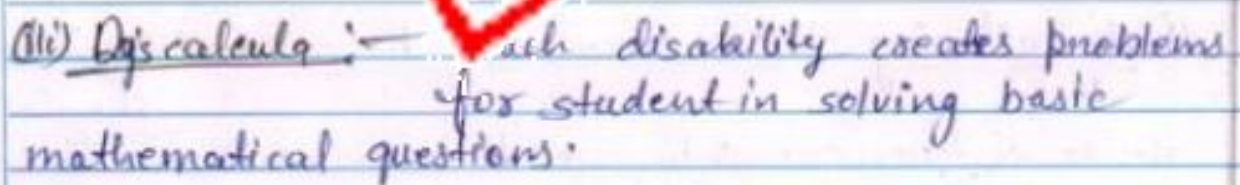 (iii) Dys calcula :- disability creates problems
for student in solving basic
mathematical questions.